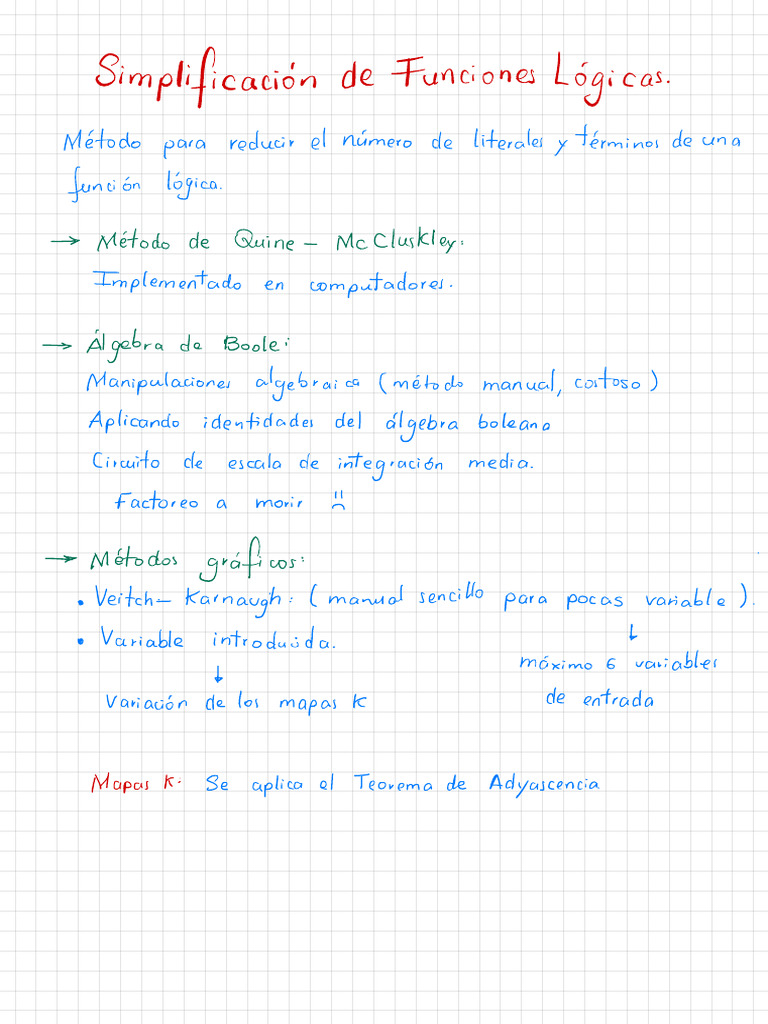 Simplificación de Funciones Lógicas.
Método para reducir el número de literales y términos de una
función lógica.
→ Método de Quine – McCluskley:
Implementado en computadores.
→ Álgebra de Boole:
Manipulaciones algebraica (método manual, costoso)
Aplicando identidades del álgebra boleana
Circuito de escala de integración media.
Factoreo a morir ☹
→ Métodos gráficos:
• Veitch – Karnaugh: (manual sencillo para pocas variable).
• Variable introducida.
↓
máximo 6 variables
↓
Variación de los mapas K
de entrada
Mapas K. Se aplica el Teorema de Adyascencia